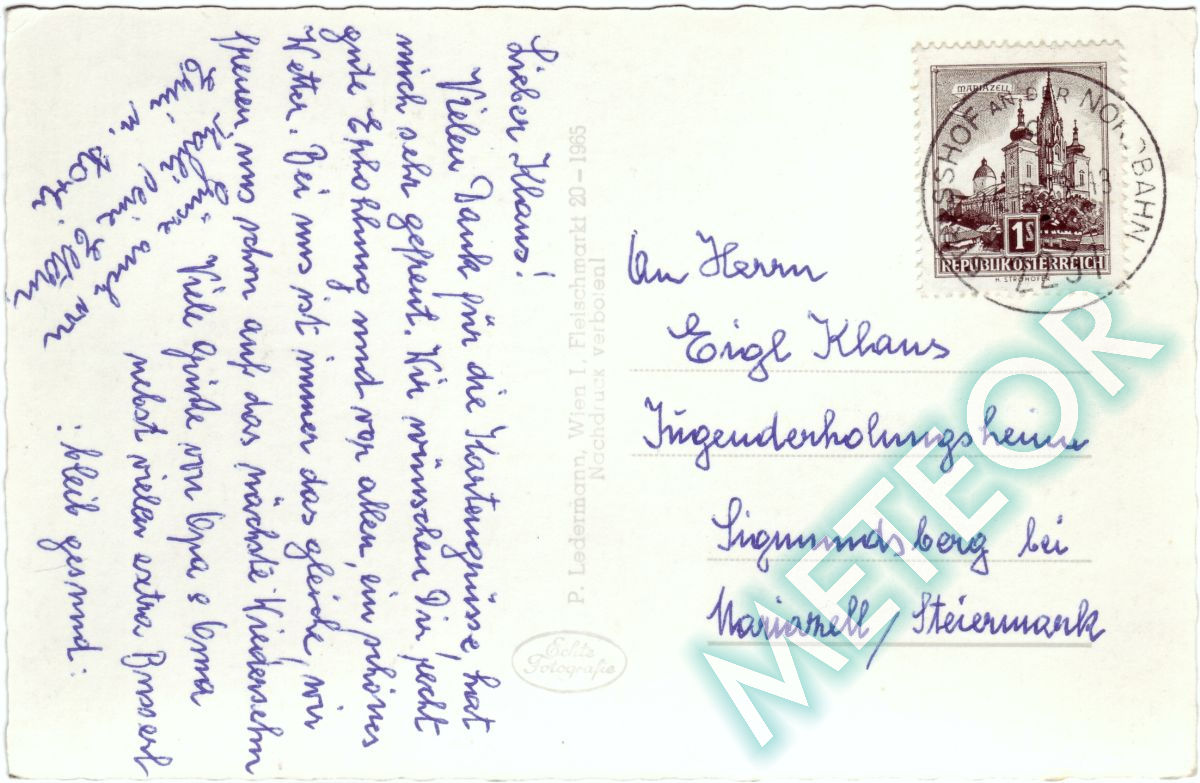 Lieber Klaus!
Vielen Dank für die Kartengrüsse, hat
mich sehr gefreut. Wir wünschen Dir recht
gute Erholung und vor allen, ein schönes
Wetter. Bei uns ist immer das gleiche, wir
freuen uns schon aufs das nächste Wiedersehn
Viele grüße von Opa & Oma
nebst vielen extra Busserl
: bleib gesund.
Grüsse auch von
Deine Eltern
P. Ledermann, Wien I, Fleischmarkt 20 - 1965
Nachdruck verboten!
Echte
Fotografie
MARIAZELL
1S
REPUBLIK ÖSTERREICH
H. STROHOFER
AN DER NORDBAHN
An Herrn
Eigl Klaus
Jugenderholungsheim
Sigmundsberg bei
Mariazell / Steiermark
METEOR